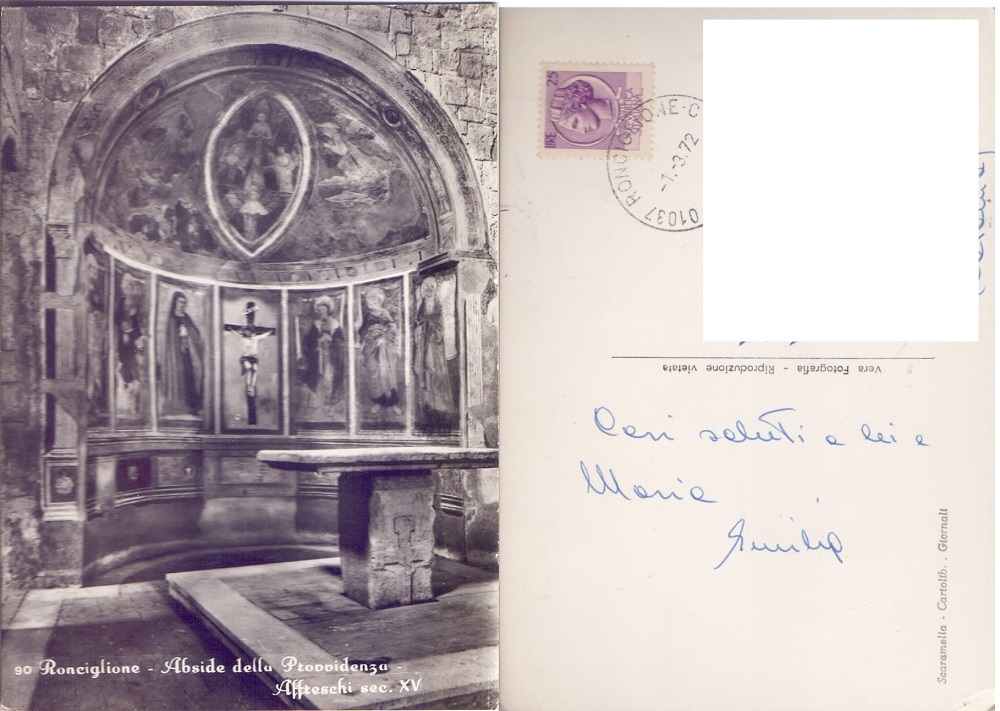 90 Ronciglione - Abside della Provvidenza -
Affreschi sec. XV
LIRE 25
01037 RONCIGLIONE
-1.-3.72
Vera Fotografia - Riproduzione vietata
Cari saluti a lei e
Maria
Emilio
Scaramella - Cartolib. . Giornali